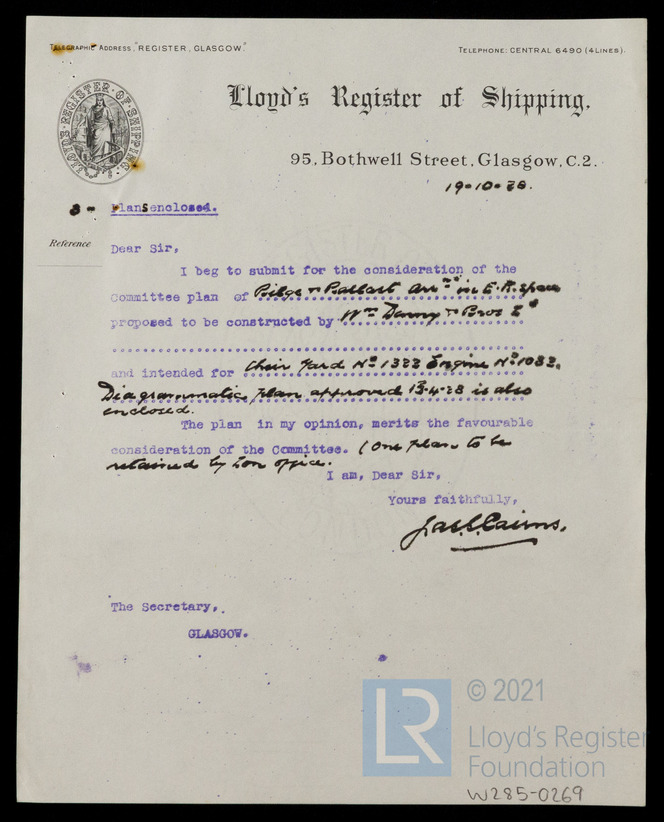 TELEGRAPHIC ADDRESS, "REGISTER, GLASGOW."
TELEPHONE: CENTRAL 6490 (4 LINES).
LLOYD'S REGISTER OF SHIPPING
Lloyd's Register of Shipping,
95, Bothwell Street, Glasgow, C.2.
19-10-28.
3 - Plans enclosed.
Reference
Dear Sir,
I beg to submit for the consideration of the
Committee plan of Bilge & Ballast arrt in E.R. space
proposed to be constructed by Wm Denny & Bros Ld
and intended for their Yard No 1323 Engine No 1083.
Diagrammatic plan approved 13-4-28 is also
enclosed.
The plan in my opinion, merits the favourable
consideration of the Committee. (One plan to be
retained by Lon office.
I am, Dear Sir,
Yours faithfully,
Jas. S. Cairns.
The Secretary,
GLASGOW.
© 2021
LR
Lloyd's Register
Foundation
W285-0269